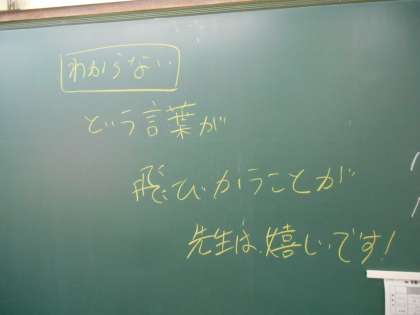 わからない
という言葉が
飛びかうことが
先生は、嬉しいです!